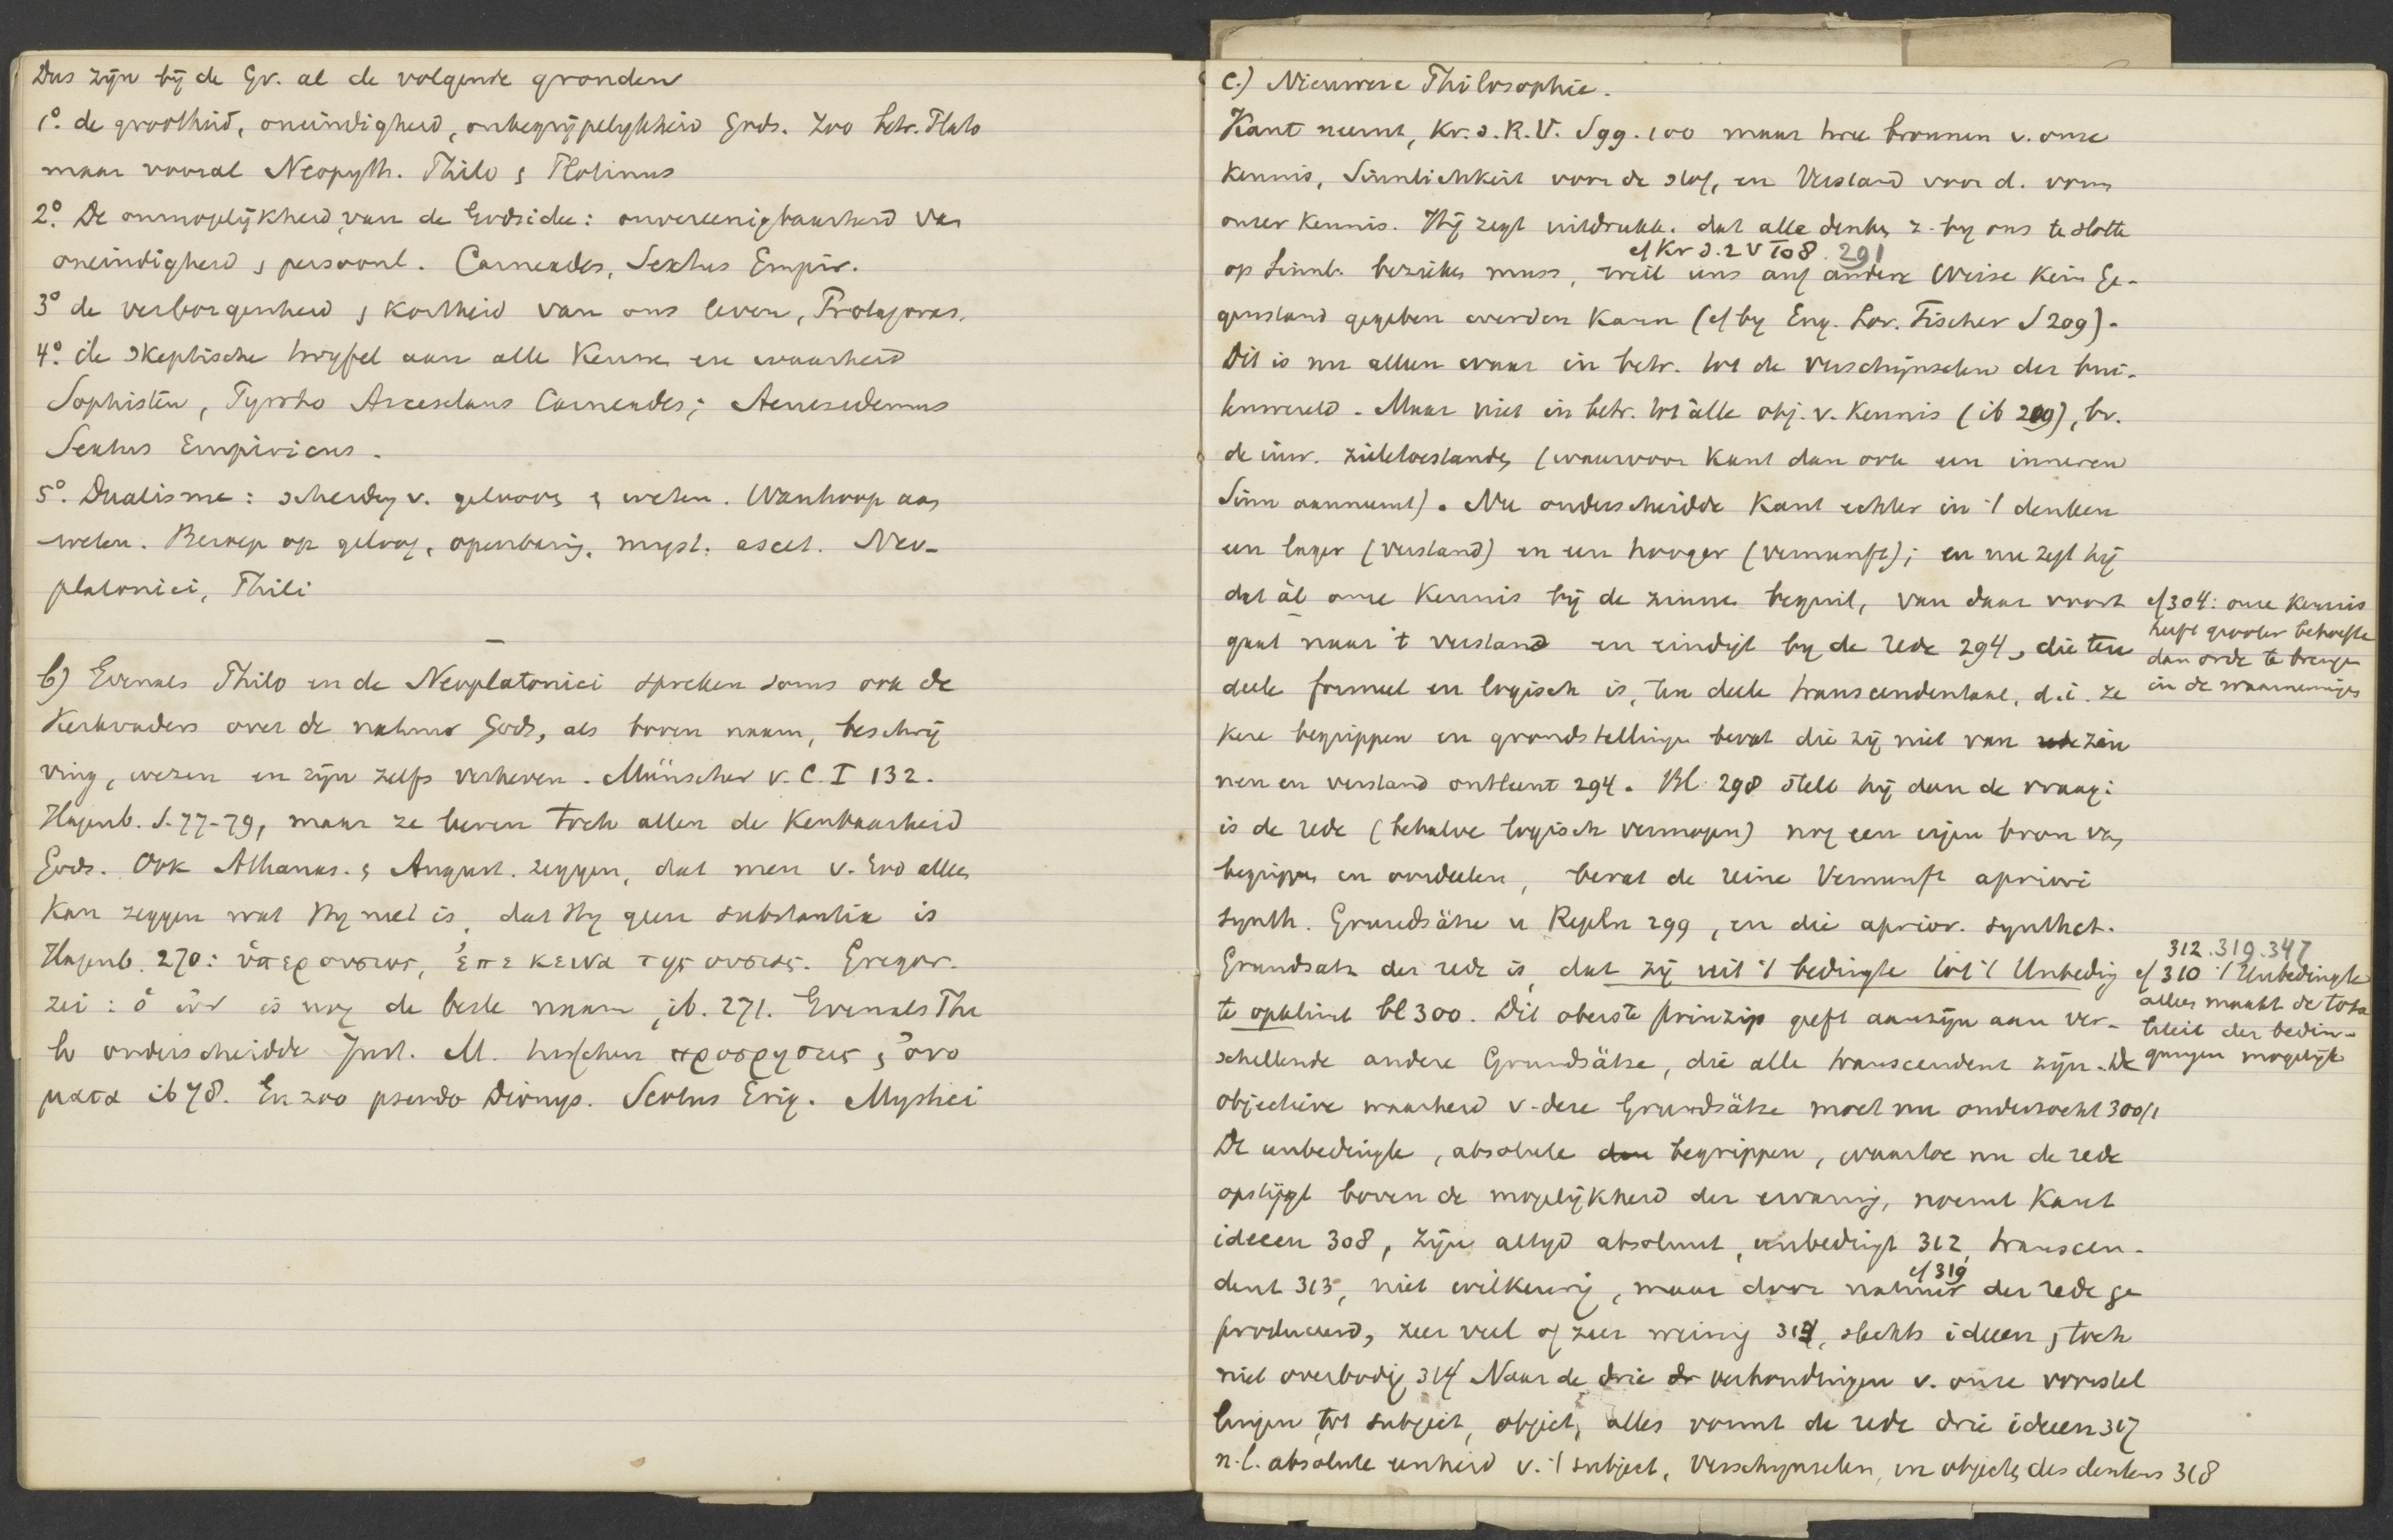 Dus zijn bij de Gr. al de volgende gronden
1o. de grootheid, oneindigheid, onbegrijpelykheid Gods. Zoo betr. Plato
maar vooral Neopyth. Philo & Plotinus
2o. De onmogelijkheid van de Godsidee: onvereenigbaarheid van
oneindigheid & persoonl. Carneades, Sextus Empir.
3o de verborgenheid & kortheid van ons leven, Protagoras.
4o. de skeptische twyfel aan alle kennis en waarheid
Sophisten, Pyrrho Arceselaus Carneades; Aenesidemus
Sextus Empiricus.
5o. Dualisme: scheidng v. geloovg & weten. Wanhoop aan
weten. Beroep op geloof, openbarig. myst. ascet. Neo-
platonici, Phili
b) Evenals Philo en de Neoplatonici spreken soms ook de
Kerkvaders over de natuur Gods, als boven naam, beschrij
ving, wezen en zijn zelfs verheven. Münscher v. C. I 132.
Hagenb. S. 77-79, maar ze leeren toch allen de kenbaarheid
Gods. Ook Athanas. & August. zeggen, dat men v. God alleen
kan zeggen wat Hy niet is, dat Hy geen substantia is
Hagenb. 270: ὑπερ ουσιας, ἐπεκεινα της ουσιας. Gregor.
zei: ὁ ὠν is nog de beste naam, ib. 271. Evenals Phi
lo onderscheidde Just. M. tusschen προσρησεις & ὀνο
ματα ib 78. En zoo pseudo Dionys. Scotus Erig. Mystici
c.) Nieuwere Philosophie.
Kant neemt, Kr. d. R. V. S 99. 100 maar twee bronnen v. onze
kennis, Sinnlichkeit voor de stof, en Verstand voor d. vorm
onzer kennis. Hij zegt uitdrukk. dat alle denken z. by ons te slotte
cf Kr d. 2 V To8. 291
op Sinnl. beziehen muss, weil uns auf andere Weise kein Ge-
genstand gegeben werden kann (cf by Eng. Lor. Fischer S 209).
Dit is nu alleen waar in betr. tot de verschijnselen der bui-
tenwereld. Maar niet in betr. tot alle obj. v. kennis (ib 209), bv.
de inw. zieletoestanden (waarvoor Kant dan ook een inneren
Sinn aanneemt). Nu onderscheidde Kant echter in 't denken
een lager (verstand) en een hooger (vernunft); en nu zegt hij
dat àl onze kennis bij de zinnen begint, van daar voort
gaat naar 't verstand en eindigt by de rede 294, die ten
deele formeel en logisch is, ten deele transcendentaal, d.i. ze
kere begrippen en grondstellingen bevat die zij niet van zin
nen en verstand ontleent 294. Bl. 298 stelt hij dan de vraag:
is de rede (behalve logisch vermogen) nog een eigen bron van
begrippen en oordeelen, bevat de reine Vernunft apriori
synth. Grundsätze u Regeln 299, en die aprior. synthet.
Grundsatz der rede is, dat zij uit 't bedingte tot 't Unbedig
te opklimt bl 300. Dit oberste Prinzip geeft aanzijn aan ver-
schillende andere Grundsätze, die alle transcendent zijn. De
objectieve waarheid v. deze Grundsätze moet nu onderzocht 300/1
De unbedingte, absolute begrippen, waartoe nu de rede
opstijgt boven de mogelijkheid der ervaring, noemt Kant
ideeen 308, zijn altyd absoluut, unbedingt 312, transcen-
cf 319
dent 313, niet willkeurig, maar door natuur der rede ge
produceerd, zeer veel of zeer weinig 314, slechts ideeen, toch
niet overbodig 314 Naar de drie verhoudingen v. onze voorstel
lingen tot subject, object, alles vormt de rede drie ideeen 317
n.l. absolute eenheid v. 't subject, verschynselen, en objecten des denkens 318
cf 304: onze kennis
heeft grooter behoefte
dan orde te brengen
in de waarnemingen
312. 319. 347
cf 310 't Unbedingte
alleen maakt de tota
liteit der bedin-
gungen mogelijk